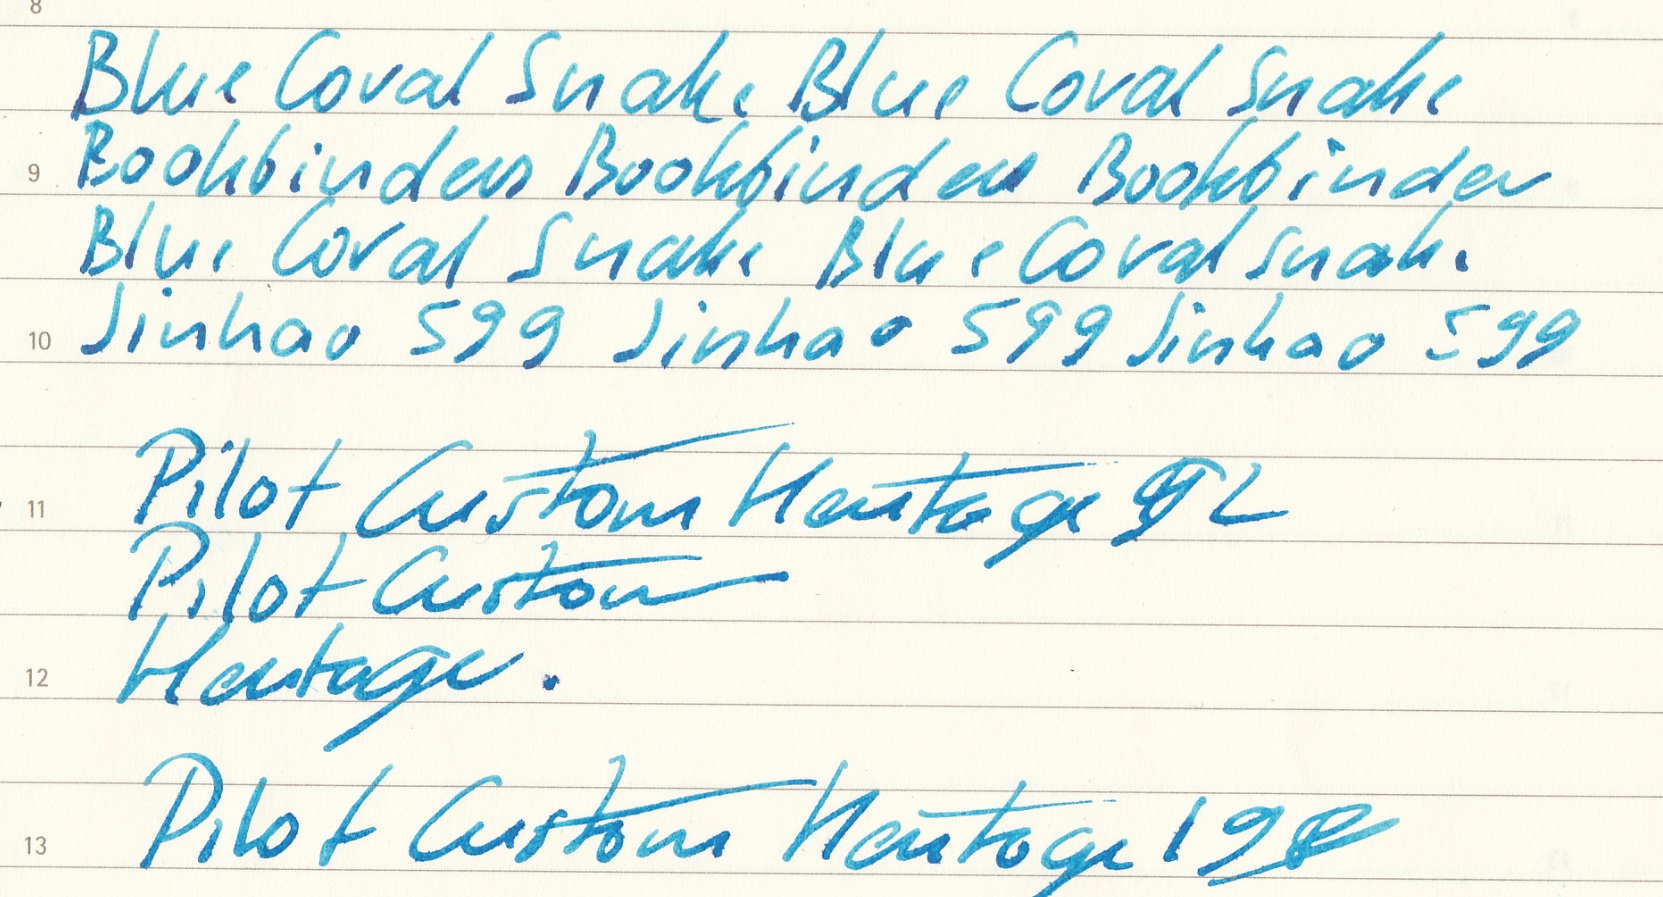 8
Blue Coral Snake Blue Coral Snake
9 Bookbinders Bookbinders Bookbinder
Blue Coral Snake Blue Coral Snake
10 Jinhao 599 Jinhao 599 Jinhao 599
11 Pilot Custom Heritage 92
Pilot Custom
12 Heritage.
13 Pilot Custom Heritage 198